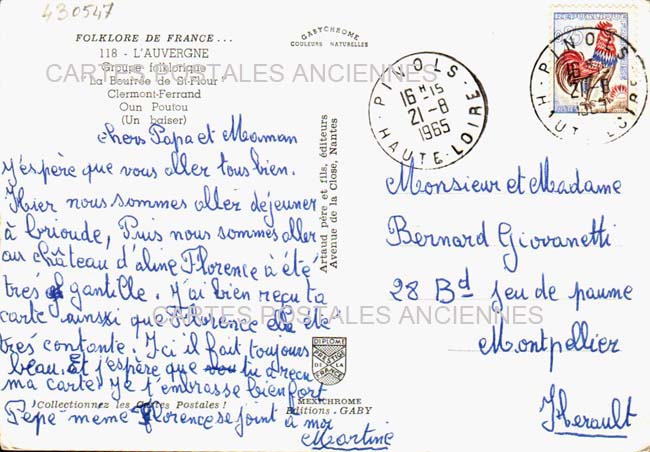 430547
FOLKLORE DE FRANCE...
118 - L'AUVERGNE
Groupe folklorique
"La Bourrée de St-Flour"
Clermont-Ferrand
Oun Poutou
(Un baiser)
GABYCHROME
COULEURS NATURELLES
CARTES POSTALES ANCIENNES
chers Papa et Maman
J'espère que vous aller tous bien.
Hier nous sommes aller déjeuner
à brioude, Puis nous sommes aller
au château d'aline Florence à été
trés gantille. J'ai bien reçu ta
carte ainski que Florence elle été
tres contante. Ici il fait toujours
beau. Et j'espère que tu a reçu
ma carte. Je t'embrasse bien fort
Pepe meme Florence se joint à moi
Martine
!Collectionnez les Cartes Postales !
Artaud père et fils, éditeurs
Avenue de la Close, Nantes
DIPLOME
PRESTIGE
DE LA
FRANCE
MEXICHROME
Editions - GABY
PINOLS
16 H 15
21-8
1965
HAUTE-LOIRE
PINOLS
16
21-8
1965
HAUTE-LOIRE
Monsieur et Madame
Bernard Giovanetti
28 Bd jeu de paume
Montpellier
Herault
CARTES POSTALES ANCIENNES